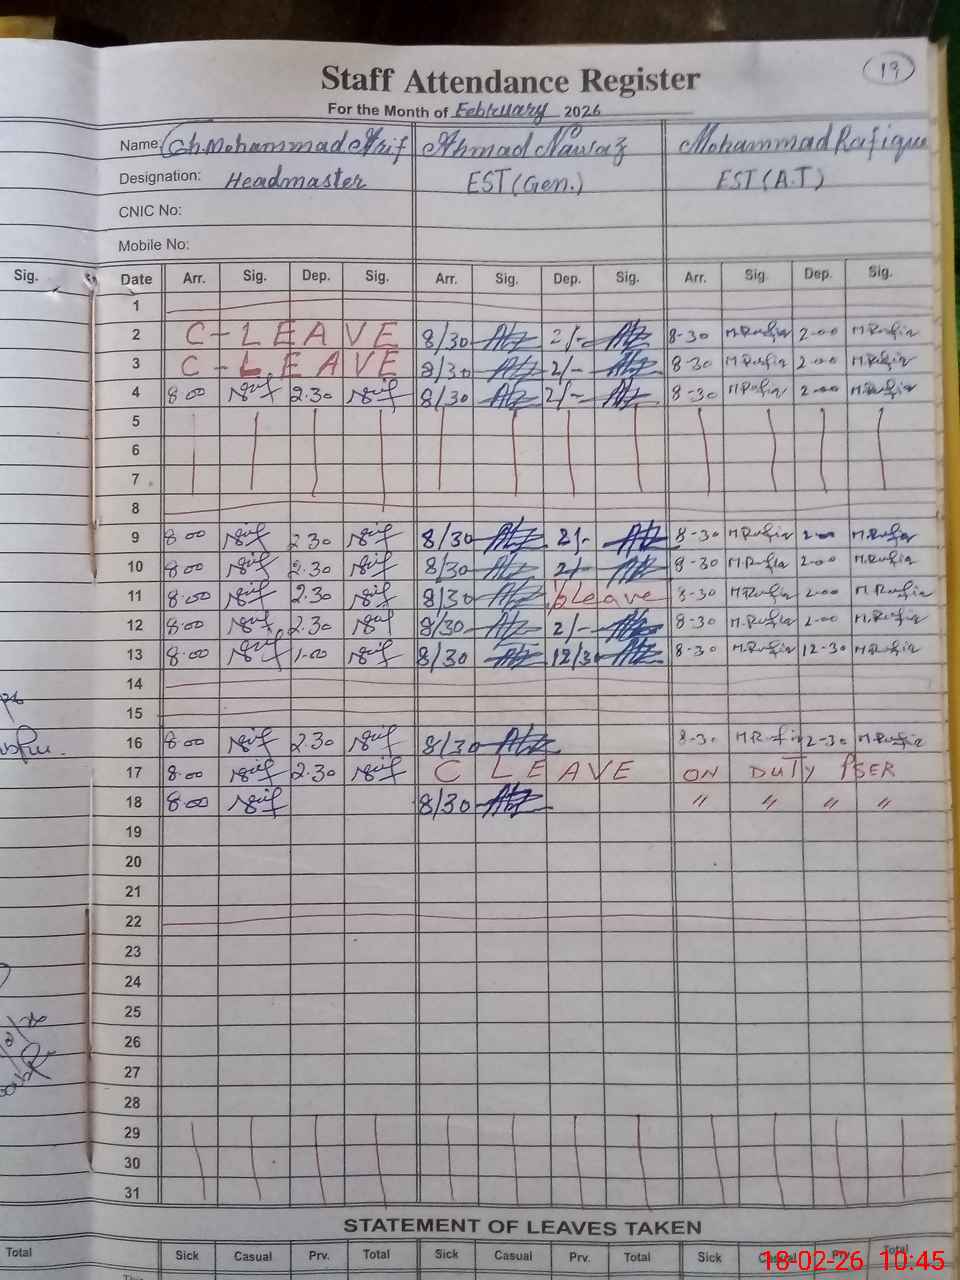 19
Staff Attendance Register
For the Month of February 2026
Name: Ch. Mohammad Arif Ahmad Nawaz Mohammad Rafique
Designation: Headmaster EST (Gen.) EST (A.T)
CNIC No:
Mobile No:
Sig. Date Arr. Sig. Dep. Sig. Arr. Sig. Dep. Sig. Arr. Sig. Dep. Sig.
1
2 C-LEAVE 8/30 2/- 8-30 M.Rafiq 2-00 M.Rafiq
3 C-LEAVE 8/30 2/- 8-30 M.Rafiq 2-00 M.Rafiq
4 8 00 2.30 8/30 2/- 8-30 M.Rafiq 2-00 M.Rafiq
5
6
7
8
9 8 00 2 30 8/30 2/- 8-30 M.Rafiq 2-00 M.Rafiq
10 8 00 2.30 8/30 2/- 8-30 M.Rafiq 2-00 M.Rafiq
11 8.00 2.30 8/30 leave 8-30 M.Rafiq 2-00 M.Rafiq
12 8.00 2.30 8/30 2/- 8-30 M.Rafiq 2-00 M.Rafiq
13 8.00 1-00 8/30 12/30 8-30 M.Rafiq 12-30 M.Rafiq
14
15
16 8.00 2.30 8/30 8-30 M.Rafiq 2-30 M.Rafiq
17 8.00 2.30 C LEAVE ON DUTY PSER
18 8.00 8/30 " " " "
19
20
21
22
23
24
25
26
27
28
29
30
31
STATEMENT OF LEAVES TAKEN
Total Sick Casual Prv. Total Sick Casual Prv. Total Sick Casual Prv. Total
18-02-26 10:45